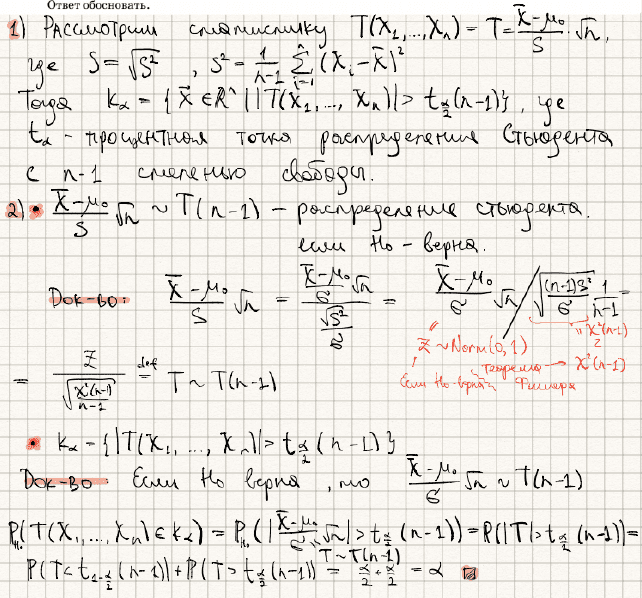 Ответ обосновать.
1) Рассмотрим статистику T(X₁,...,Xₙ) = T = (X̄-μ₀)/S · √n,
где S = √S², S² = 1/(n-1) ∑ᵢ₌₁ⁿ (Xᵢ-X̄)²
Тогда K_α = { X⃗ ∈ ℝⁿ | |T(X₁,..., Xₙ)| > t_{α/2}(n-1)}, где
t_α - процентная точка распределения Стьюдента
с n-1 степенью свободы.
2) • (X̄-μ₀)/S √n ~ T(n-1) - распределение стьюдента.
если H₀ - верна.
Док-во: (X̄-μ₀)/S √n = ((X̄-μ₀)/σ √n)/(√S²/σ) = (X̄-μ₀)/σ √n / √((n-1)S²/σ² · 1/(n-1)) =
" Z ~ Norm(0,1) " χ²(n-1)
Если H₀-верна Теорема Фишера → χ²(n-1)
= Z/√(χ²(n-1)/(n-1)) =def T ~ T(n-1)
• K_α = {|T(X₁, ..., Xₙ)| > t_{α/2}(n-1)}
Док-во Если H₀ верна, то (X̄-μ₀)/σ √n ~ T(n-1)
P_{H₀}(T(X₁,...,Xₙ) ∈ K_α) = P_{H₀}(|(X̄-μ₀)/σ √n| > t_{α/2}(n-1)) = P(|T| > t_{α/2}(n-1)) =
P(T < t_{1-α/2}(n-1)) + P(T > t_{α/2}(n-1)) =^{T~T(n-1)} α/2 + α/2 = α